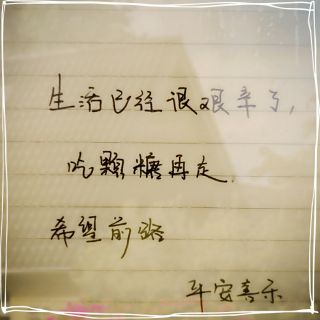 生活已经很艰辛了,
吃颗糖再走.
希望前路
平安喜乐